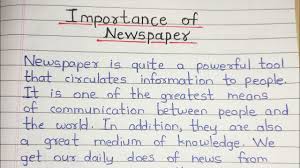 Importance of
Newspaper
Newspaper is quite a powerful tool
that circulates information to people.
It is one of the greatest means
of communication between people and
the world. In addition, they are also
a great medium of knowledge. We
get our daily does of news from